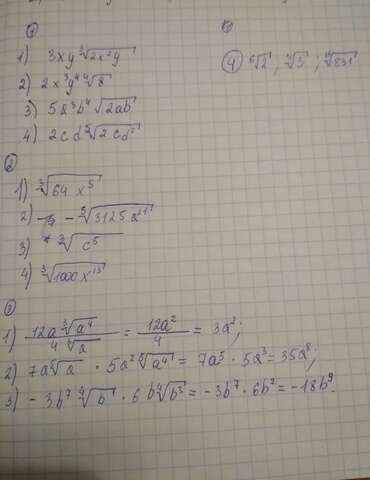 ①
1) 3xy ∛(2x²y)
2) 2x³y⁴ ∜8
3) 5a³b⁴ √(2ab)
4) 2cd ⁵√(2cd²)
②
1) ∛(64x⁵)
2) - ⁵√(3125a²¹)
3) ∛(c⁵)
4) ∛(1000x¹³)
③
1) 12a ∛(a⁴) / 4 ∛a = 12a² / 4 = 3a²;
2) 7a ⁵√a · 5a² ⁵√(a⁴) = 7a⁵ · 5a³ = 35a⁸;
3) -3b⁷ ∜b · 6b ∜(b³) = -3b⁷ · 6b² = -18b⁹.
④ ⁶√2; ∛3;